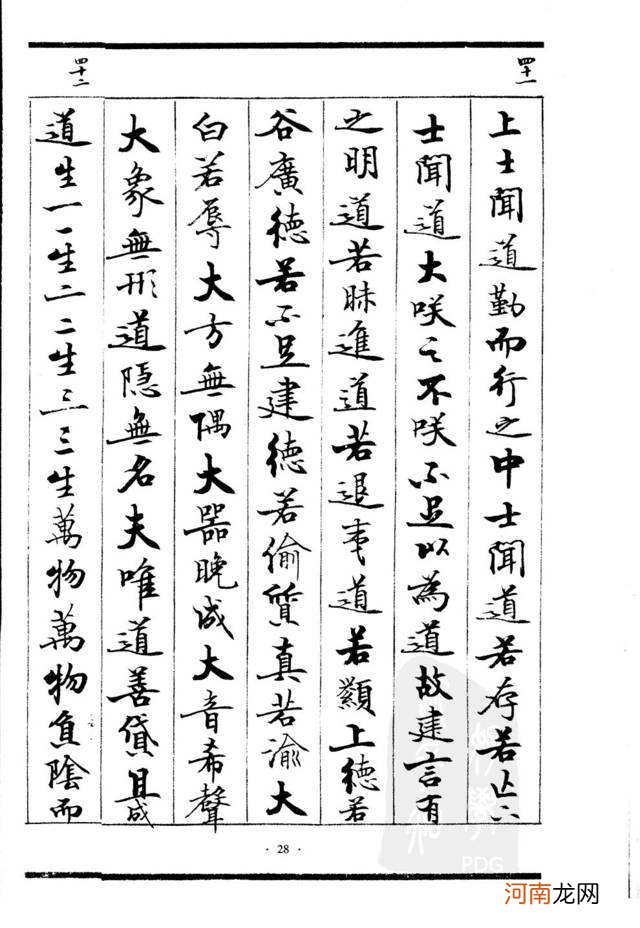 四十一
上士聞道勤而行之中士聞道若存若亡下
士聞道大咲之不咲不足以為道故建言有
之明道若昧進道若退夷道若纇上德若
谷廣德若不足建德若偷質真若渝大
白若辱大方無隅大器晚成大音希聲
大象無形道隱無名夫唯道善貸且成
四十二
道生一一生二二生三三生萬物萬物負陰而
· 28 ·
PDG
河南龙网